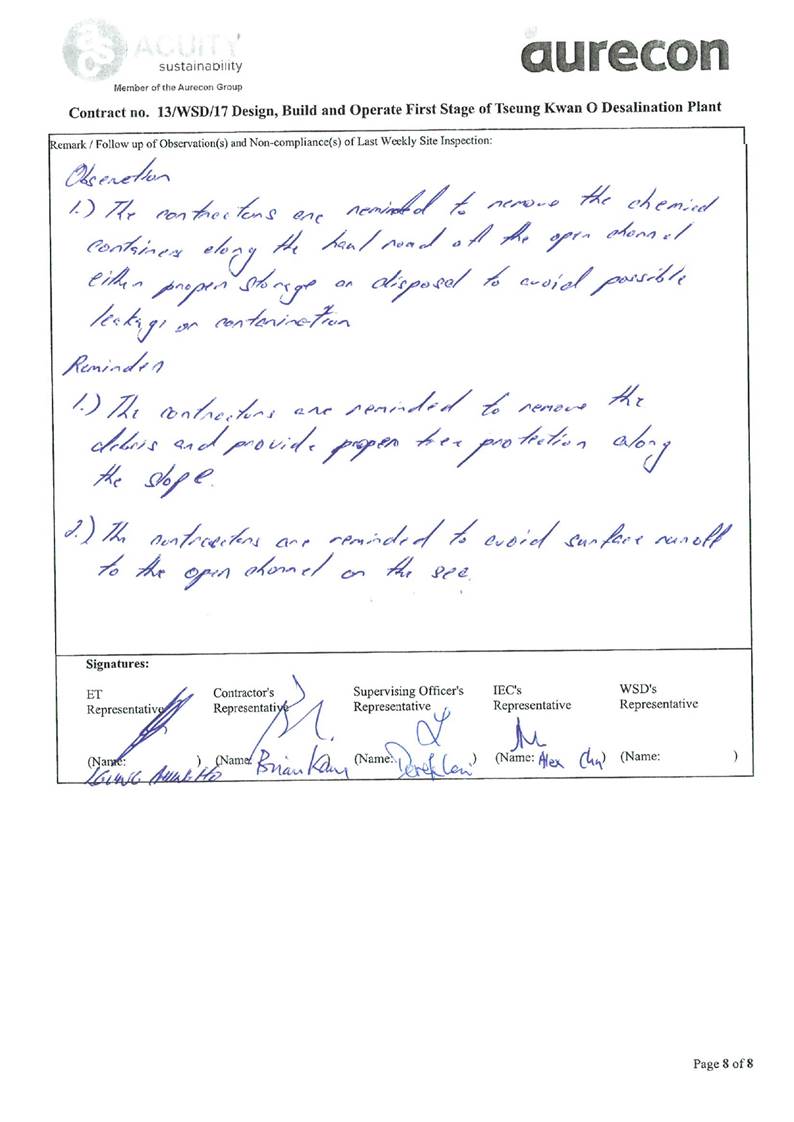 asc ACUITY
sustainability
Member of the Aurecon Group
aurecon
Contract no. 13/WSD/17 Design, Build and Operate First Stage of Tseung Kwan O Desalination Plant
Remark / Follow up of Observation(s) and Non-compliance(s) of Last Weekly Site Inspection:
Observation
1.) The contractors are reminded to remove the chemical
containers along the haul road at the open channel
either proper storage or disposal to avoid possible
leakage or contamination
Reminder
1.) The contractors are reminded to remove the
debris and provide proper tree protection along
the slope.
2.) The contractors are reminded to avoid surface runoff
to the open channel or the sea.
Signatures:
ET Representative
Contractor's Representative
Supervising Officer's Representative
IEC's Representative
WSD's Representative
(Name: )
(Name: Brian Kam
(Name: Derek Lan )
(Name: Alex Chu)
(Name: )
Page 8 of 8